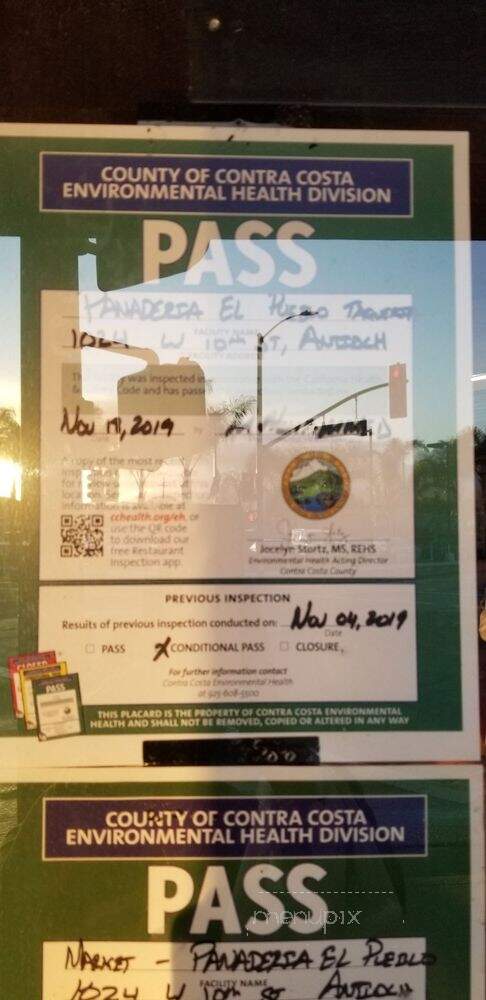 COUNTY OF CONTRA COSTA
ENVIRONMENTAL HEALTH DIVISION
PASS
PANADERIA EL PUEBLO TAQUERIA
FACILITY NAME
1024 W 10th ST, ANTIOCH
FACILITY ADDRESS
was inspected in
Code and has passed
Nov 19, 2019
by
A copy of the most recent
information is available at
cchealth.org/eh, or
use the QR code
to download our
free Restaurant
Inspection app.
Jocelyn Stortz, MS, REHS
Environmental Health Acting Director
Contra Costa County
PREVIOUS INSPECTION
Results of previous inspection conducted on: Nov 04, 2019
Date
PASS X CONDITIONAL PASS CLOSURE
For further information contact
Contra Costa Environmental Health
at 925-608-5500
CLOSED
PASS
THIS PLACARD IS THE PROPERTY OF CONTRA COSTA ENVIRONMENTAL
HEALTH AND SHALL NOT BE REMOVED, COPIED OR ALTERED IN ANY WAY
COUNTY OF CONTRA COSTA
ENVIRONMENTAL HEALTH DIVISION
PASS
menupix
MARKET - PANADERIA EL PUEBLO
FACILITY NAME
1024 W 10th ST ANTIOCH